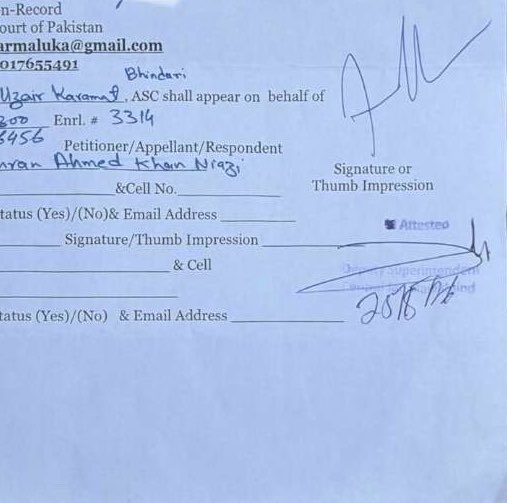 n-Record
ourt of Pakistan
armaluka@gmail.com
017655491
Bhindari
Uzair Karamat, ASC shall appear on behalf of
300 Enrl. # 3314
6456 Petitioner/Appellant/Respondent
mran Ahmed Khan Niazi
Signature or
Thumb Impression
&Cell No.
tatus (Yes)/(No)& Email Address
Attested
Signature/Thumb Impression
Deputy Superintendent
& Cell
tatus (Yes)/(No) & Email Address